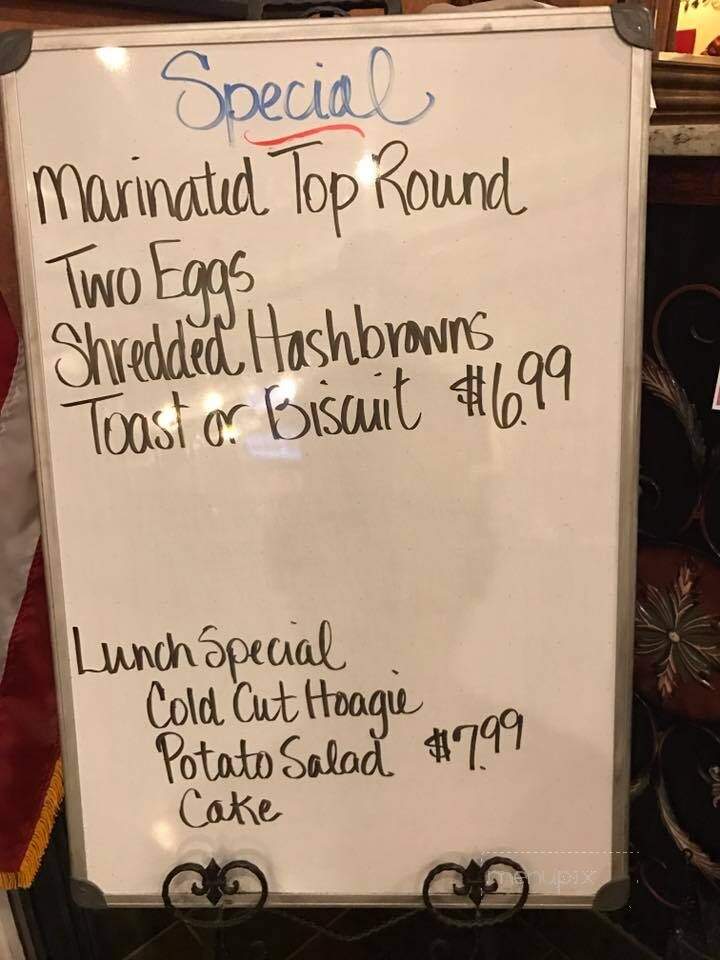 Special
Marinated Top Round
Two Eggs
Shredded Hashbrowns
Toast or Biscuit $6.99
Lunch Special
Cold Cut Hoagie
Potato Salad $7.99
Cake
menupix